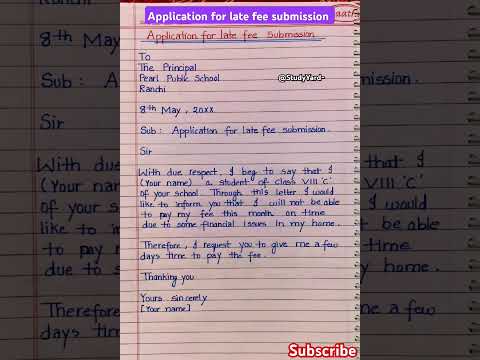 Application for late fee submission
Application for late fee submission
@StudyYard-
To
The Principal
Pearl Public School
Ranchi
8th May, 20xx
Sub: Application for late fee submission.
Sir
With due respect, I beg to say that I
(Your name) a student of class VIII 'C'
of your school. Through this letter I would
like to inform you that I will not be able
to pay my fee this month on time
due to some financial issues in my home.
Therefore, I request you to give me a few
days time to pay the fee.
Thanking you
Yours sincerely
[Your name]
Subscribe
Ranchi
8th May
Sub: A
Sir
With du
(Your na
of your s
like to in
to pay m
due to s
Therefore
days tim
fee submission.
that I
VIII 'C'
I would
be able
home.
me a few